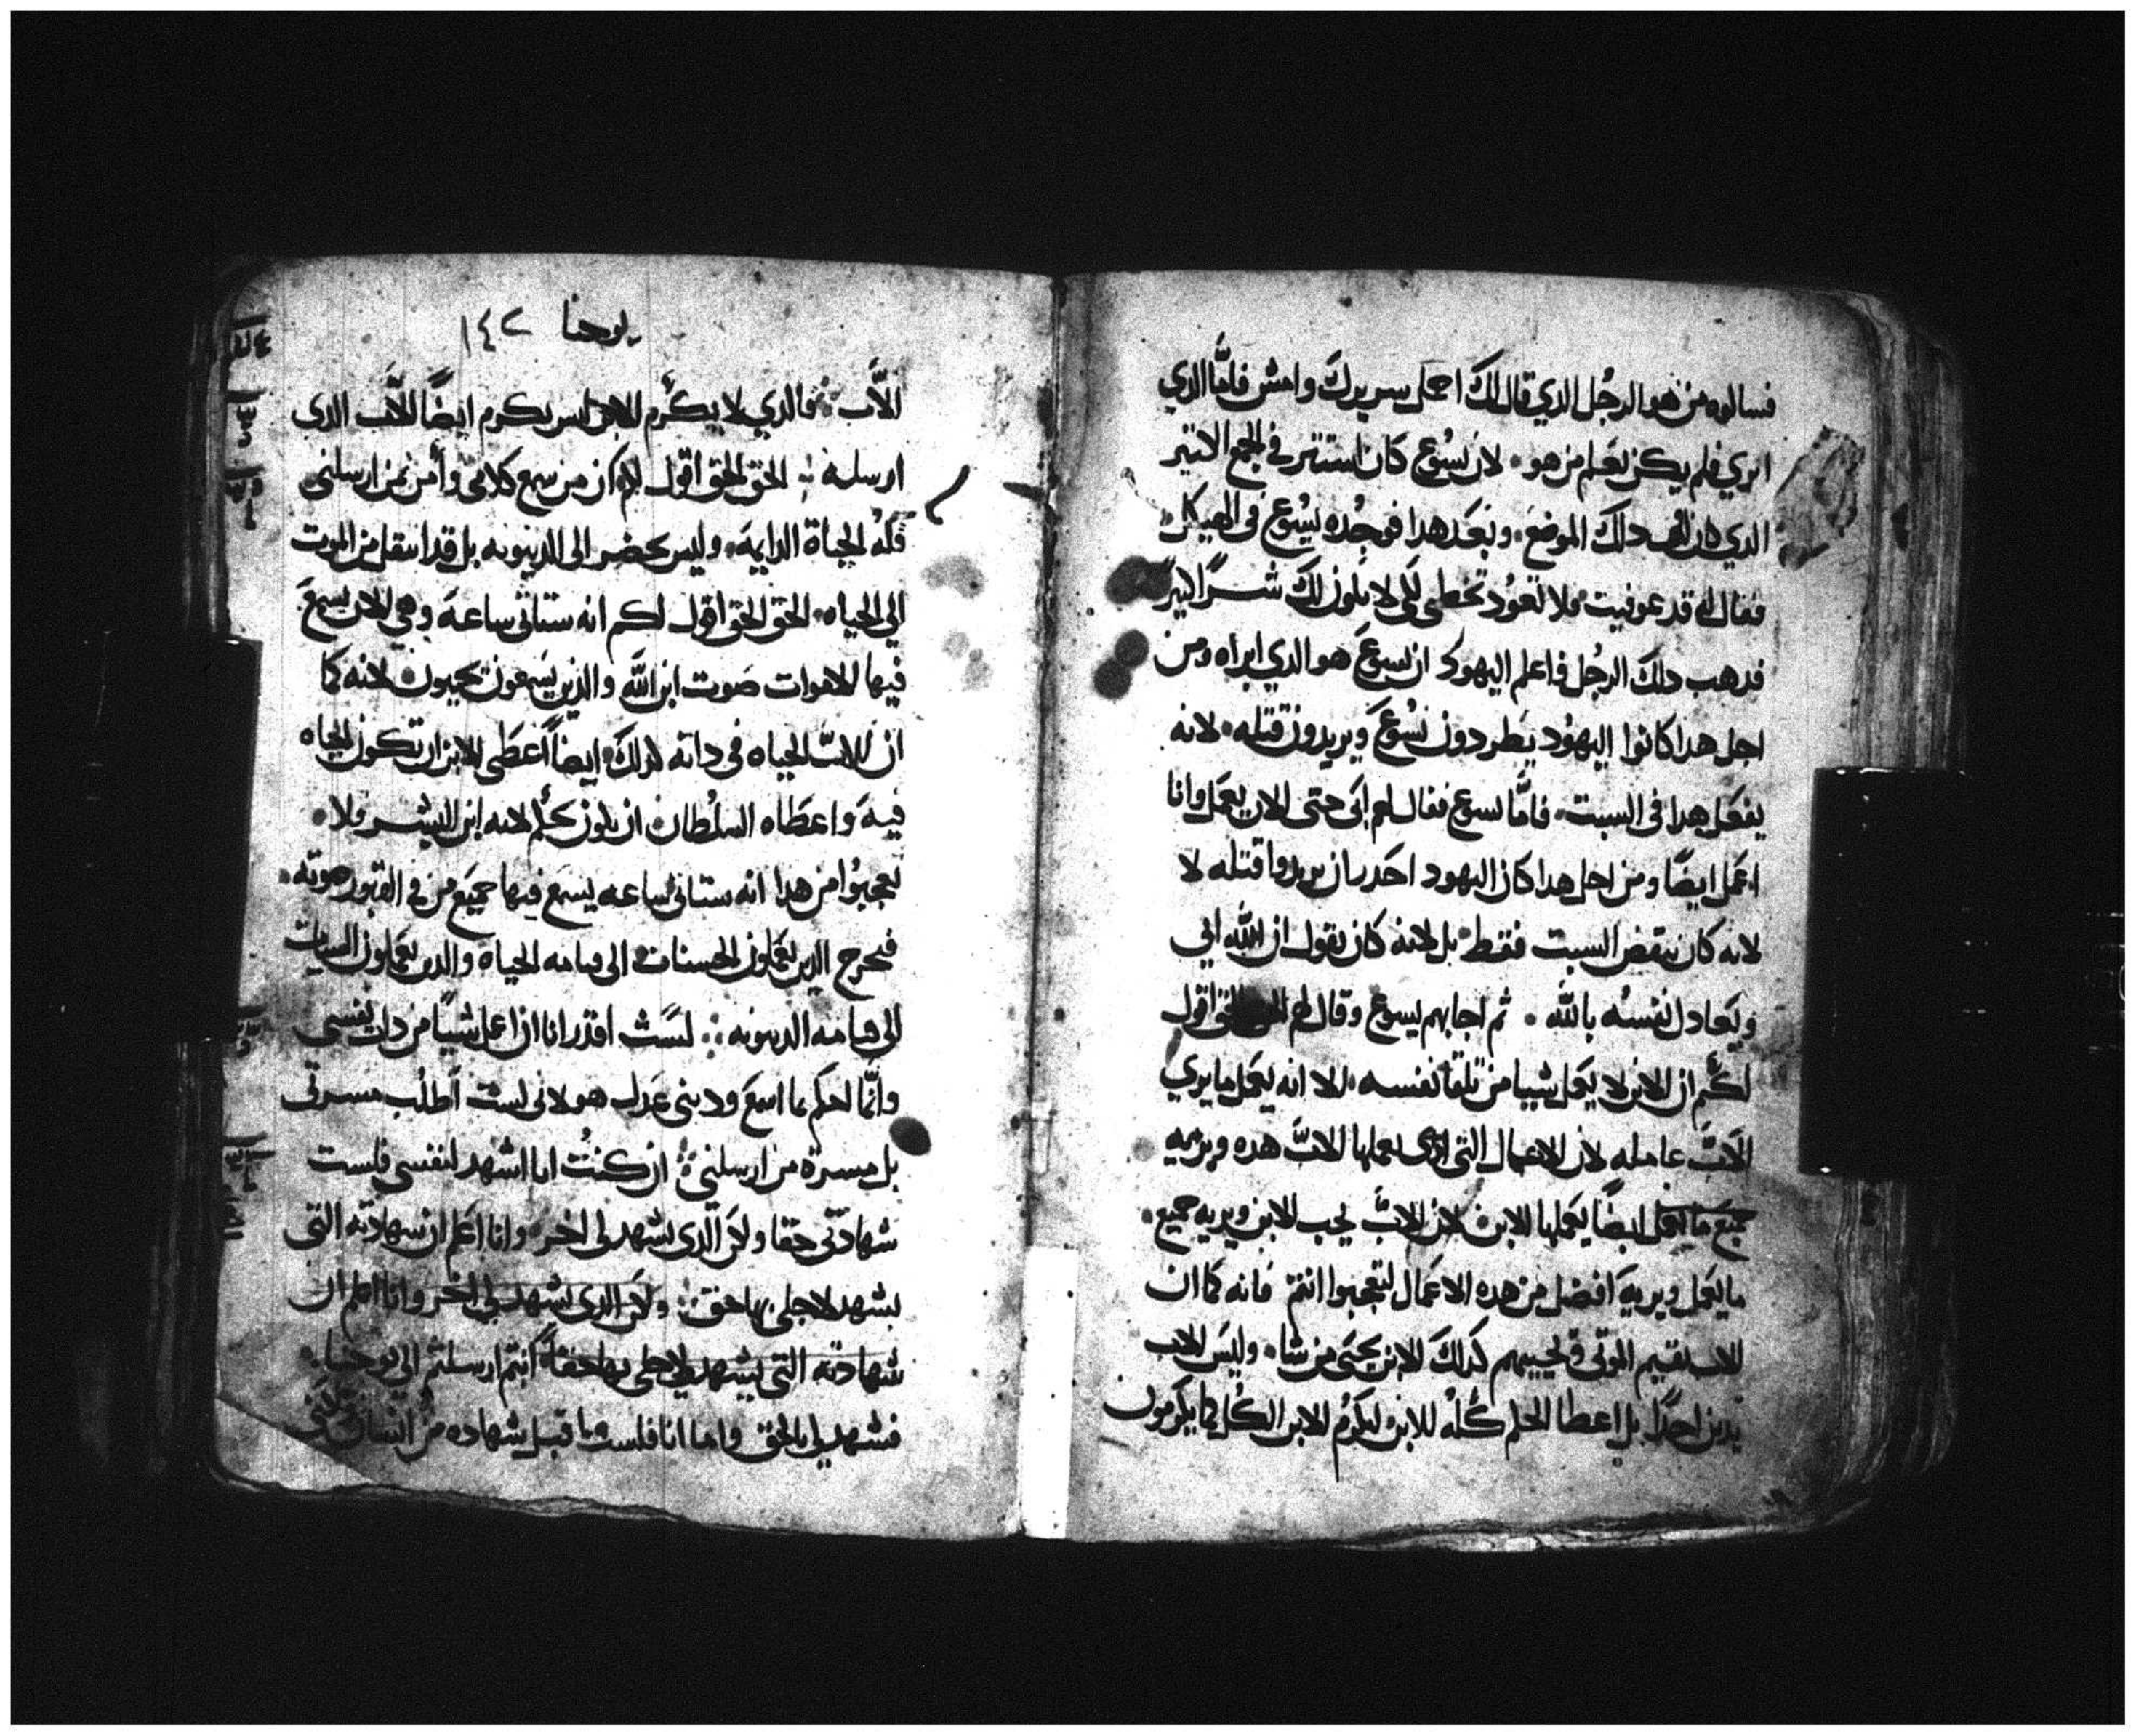 فسالوه من هو الرجُل الدي قال لك احمل سريرك وامش فامَّا الدي
ابري فلم يكن يعلم من هو لان يسُوع كان استتر في الجمع الكتير
الدي كان في دلك الموضع وبعَد هدا فوجُده يسُوع في الهيكل
فقال له قد عوفيت فلا تعوُد تخطي لكي لا يكون لك شرًا اكتر
فدهب دلك الرجُل فاعلم اليهود ان يسوع هو الدي ابراه ومن
اجل هدا كانوا اليهُود يطردون يسُوع ويريدون قتله لانه
يفعَل هدا في السبت فامَّا يسوع فقال لهم ابي حتى الان يعمل وانا
اعمل ايضًا ومن اجل هدا كان اليهود احدر ان يريدوا قتله لا
لانه كان ينقض السبت فقط بل لانه كان يقول ان الله ابي
ويعَادل نفسُه بالله ثم اجابهم يسوع وقال لهم الحق الحق اقول
لكُم ان الابن لا يعَمل شييا من تلقا نفسه الا انه يعَمل ما يري
الاَبَّ عامله لان الاعمال التي يعملها الابَّ هده ويريه
جميَع ما يعمل ايضًا يعَملها الابن لان الابَّ يحب الابن ويريه جميع
ما يعَمل ويريه افضل من هده الاعمَال لتتعجبوا انتم فانه كما ان
الاب يقيم الموتي ويحييهم كدلك الابن يحيَي من يشا وليَس الاب
يدين احدًا بل اعطا الحكم كُله للابن ليكرَم الابن الكُل كما يكرمون
يوحنا ١٤٢
الاَّب فالدي لا يكرَم الابن ليس يكرم ايضًا الاَّب الدي
ارسله الحق الحق اقول لكم ان من سمع كلامي وآمن بمن ارسلني
فلهُ الحياة الدايمَة وليس يحضر الى الدينونه بل قد انتقل من الموت
الي الحياه الحق الحق اقول لكم انه ستاتي ساعة وهي الان يسمع
فيها الاموات صوت ابن الله والدين يسَمعون يحيون لانه كما
ان للابّ الحياه في داته كدلك ايضًا اعطَى للابن ان تكون الحياه
فيه واعطَاه السلُطان ان يكون يحكم لانه ابن البشر فلا
تعجبوُا من هدا انه ستاتي ساعه يسمع فيها جميَع من في القبور صوته
فيخرج الدين يعَملون الحسنات الى قيامه الحياه والدين يعَملون السيات
الى قيامه الدينونه لسَت اقدر انا ان اعمل شييًا من دات نفسي
وانَّما احكم بما اسمع ودينى عَدل هو لاني لست اَطلُب مسرتي
بل مسرة من ارسلني ان كنتُ انا اشهد لنفسي فليست
شهادَتي حقا ولكن الَّدي يشهد لي اخر وانا اعَلم ان شهادته التي
يشهد لاجلي بها حق ولكن الدي يشهد لي اخر وانا اعلم ان
شهادته التي يشهد لاجلي بها حقاً انتم ارسلتم الي يوحنا
فشهد لي بالحق واما انا فلست اقبل شهاده من انسان